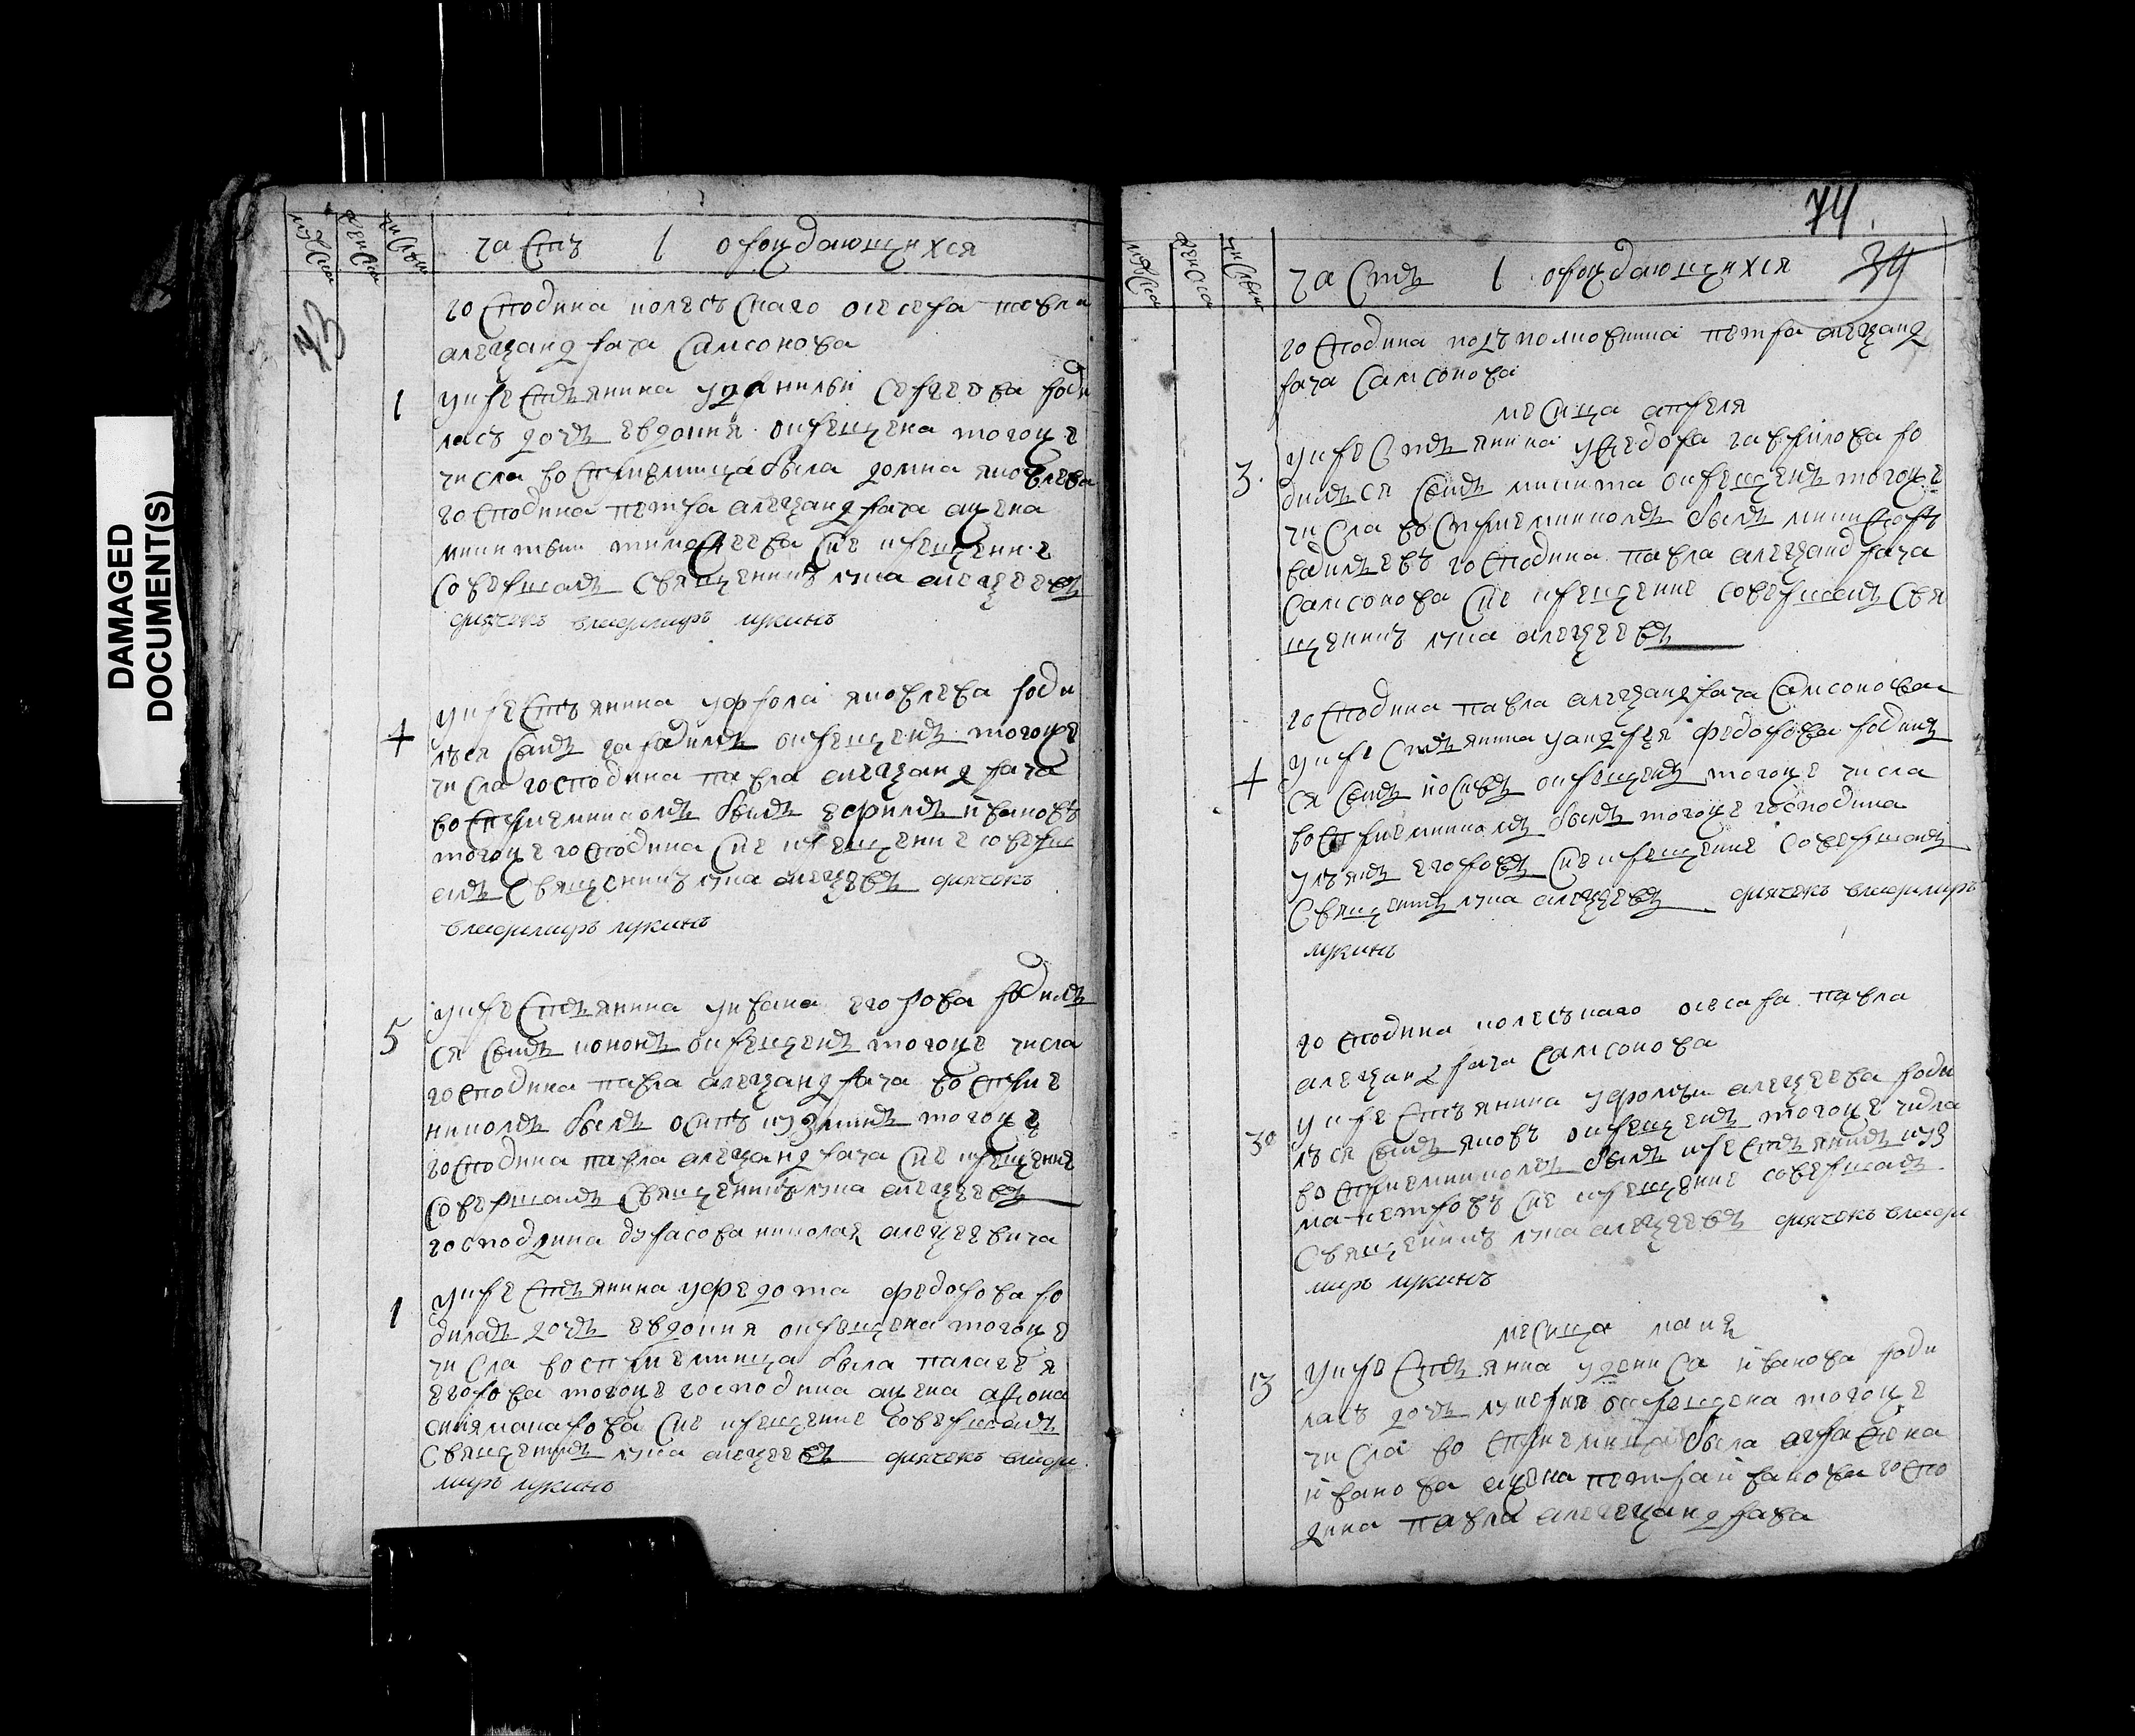 DAMAGED
DOCUMENT(S)
часть 1 о раждающихся
73
господина колескаго осесара павла
александрача самсонова
1
у крестьянина у данилы сергеева роди
лась дочь евдокия окрещена того же
числа восприемница была домна яковлева
господина петра александрача жена
никиты тимофеева сие крещение
совершалъ священникъ лука алексеевъ
дьячекъ владимиръ лукинъ
4
у крестьянина у фрола яковлева роди
лъся сынъ гаврилъ окрещенъ того же
числа господина павла александрача
восприемникомъ былъ ефимъ ивановъ
того же господина сие крещение соверш
алъ священникъ лука алексеевъ дьячекъ
владимиръ лукинъ
5
у крестьянина у ивана егорова родилъ
ся сынъ кононъ окрещенъ того же числа
господина павла александрача восприе
никомъ былъ осипъ кузминъ того же
господина павла александрача сие крещение
совершалъ священникъ лука алексеевъ
господина дурасова николая алексеевича
1
у крестьянина у федота федорова ро
дилась дочь евдокия окрещена того же
числа восприемница была палагея
егорова того же господина жена афона
сия макарова сие крещение совершалъ
священникъ лука алексеевъ дьячекъ влади
миръ лукинъ
74
39
часть 1 о раждающихся
господина подполковника петра александ
рача самсонова
месица апреля
3
у крестьянина у федора гаврилова ро
дилъся сынъ никита окрещенъ того же
числа восприемникомъ былъ никифоръ
господина павла александрача
самсонова сие крещение совершалъ свя
щенникъ лука алексеевъ
господина павла александрача самсонова
4
у крестьянина у андрея федорова родилъ
ся сынъ иосивъ окрещенъ того же числа
восприемникомъ былъ того же господина
ульянъ егоровъ сие крещение совершалъ
священникъ лука алексеевъ дьячекъ владимиръ
лукинъ
господина колескаго осесара павла
александрача самсонова
30
у крестьянина у фомы алексеева роди
лъся сынъ яковъ окрещенъ того же числа
восприемникомъ былъ крестьянинъ куз
ма петровъ сие крещение совершалъ
священникъ лука алексеевъ дьячекъ влади
миръ лукинъ
месица маия
13
у крестьянина у дениса иванова роди
лась дочь лукерия окрещена того же
числа восприемница была аграфена
иванова жена петра иванова госпо
дина павла александрава